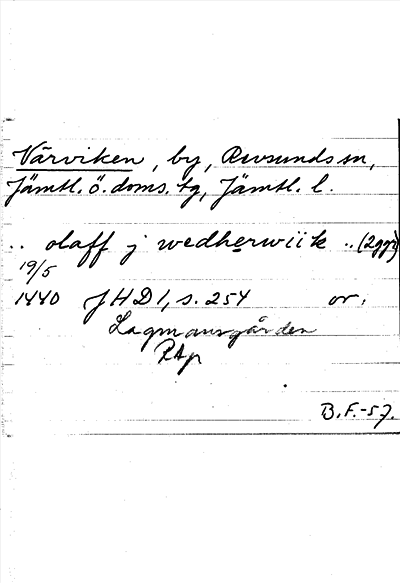 Värviken, by, Revsunds sn,
Jämtl. ö. doms. tg, Jämtl. l.
.. olaff j wedherwiik .. (2ggr)
19/5
1440 JHD 1, s. 254 or.
Lagmansgården
RAp
B.F.-57.